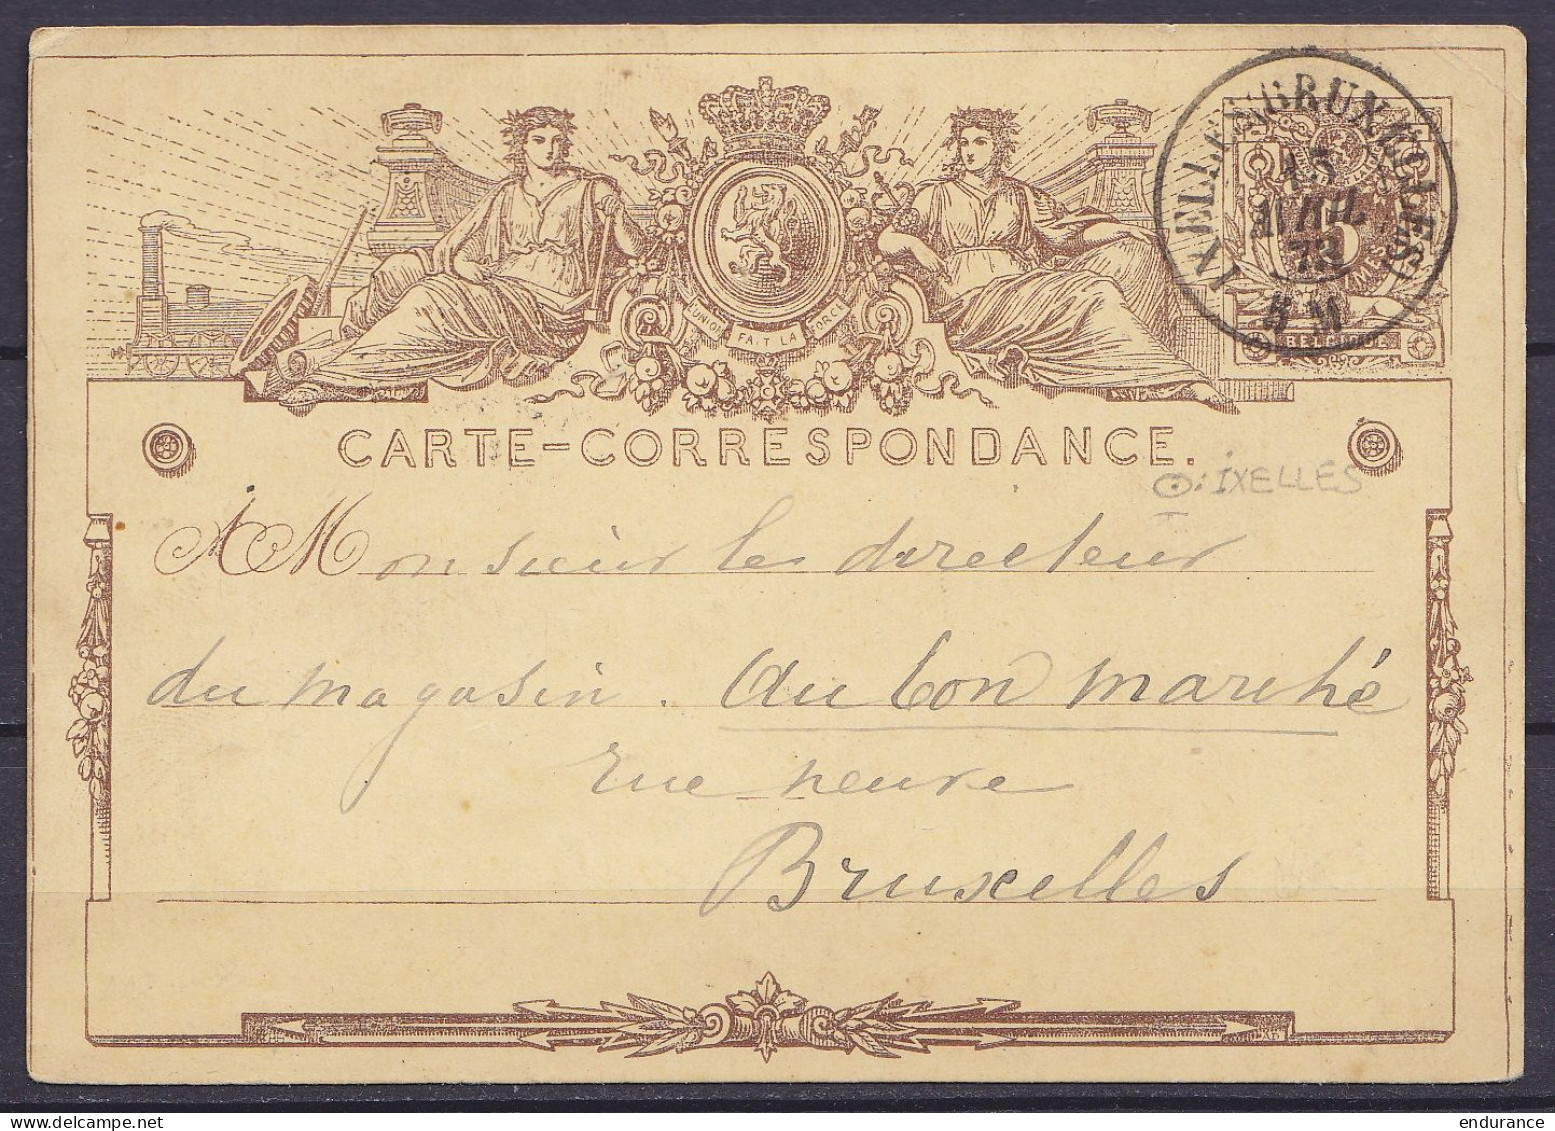 IXELLES (BRUXELLES)
15
AVRIL
73
8 M
L'UNION FAIT LA FORCE
5
BELGIQUE
CARTE-CORRESPONDANCE.
IXELLES
A Monsieur le directeur
du magasin. Au bon marché
rue neuve
Bruxelles
endurance